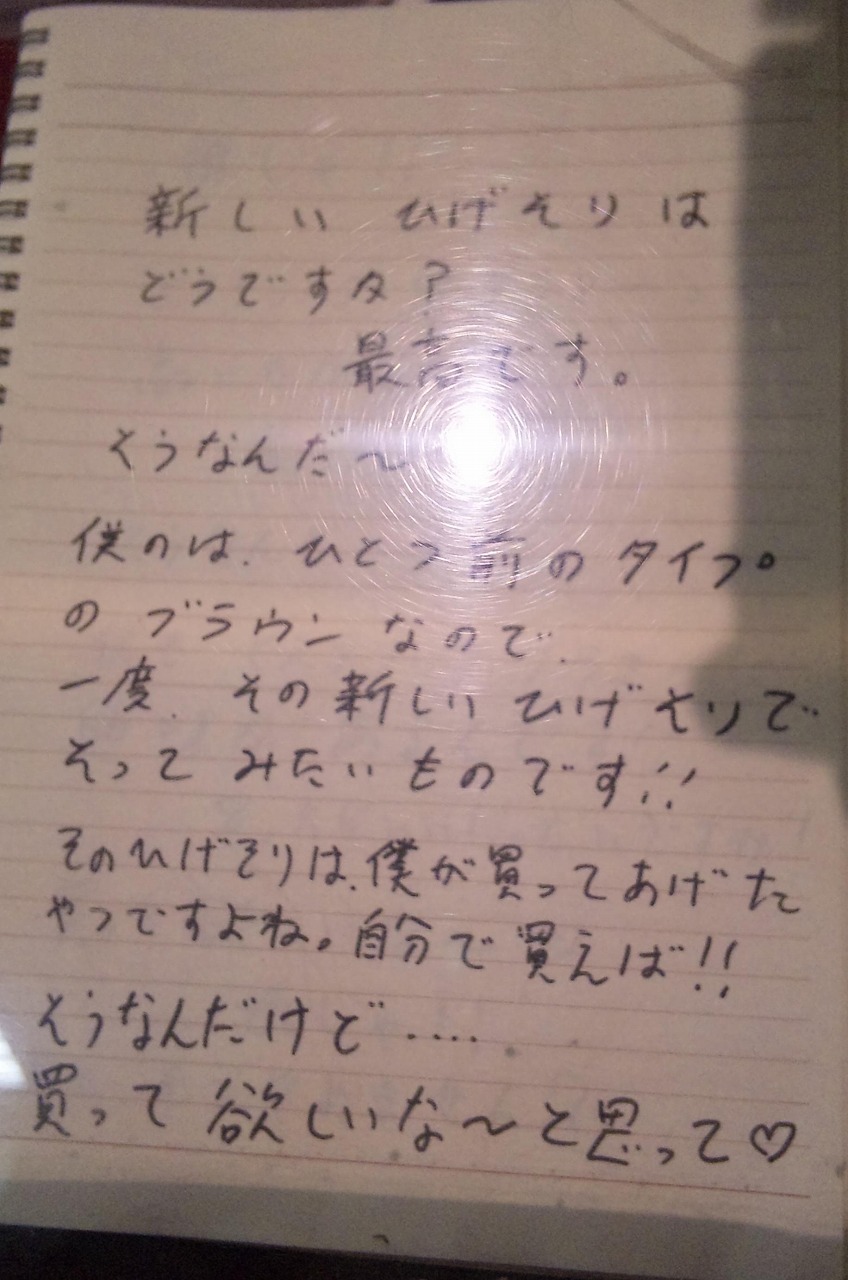 新しい ひげそりは
どうですか?
最高です。
そうなんだ〜
僕のは、ひとつ前のタイプ
の ブラウン なので、
一度、その新しい ひげそりで
そって みたいものです!!
そのひげそりは、僕が買ってあげた
やつですよね。自分で買えば!!
そうなんだけど・・・・
買って 欲しいな〜と思って♡